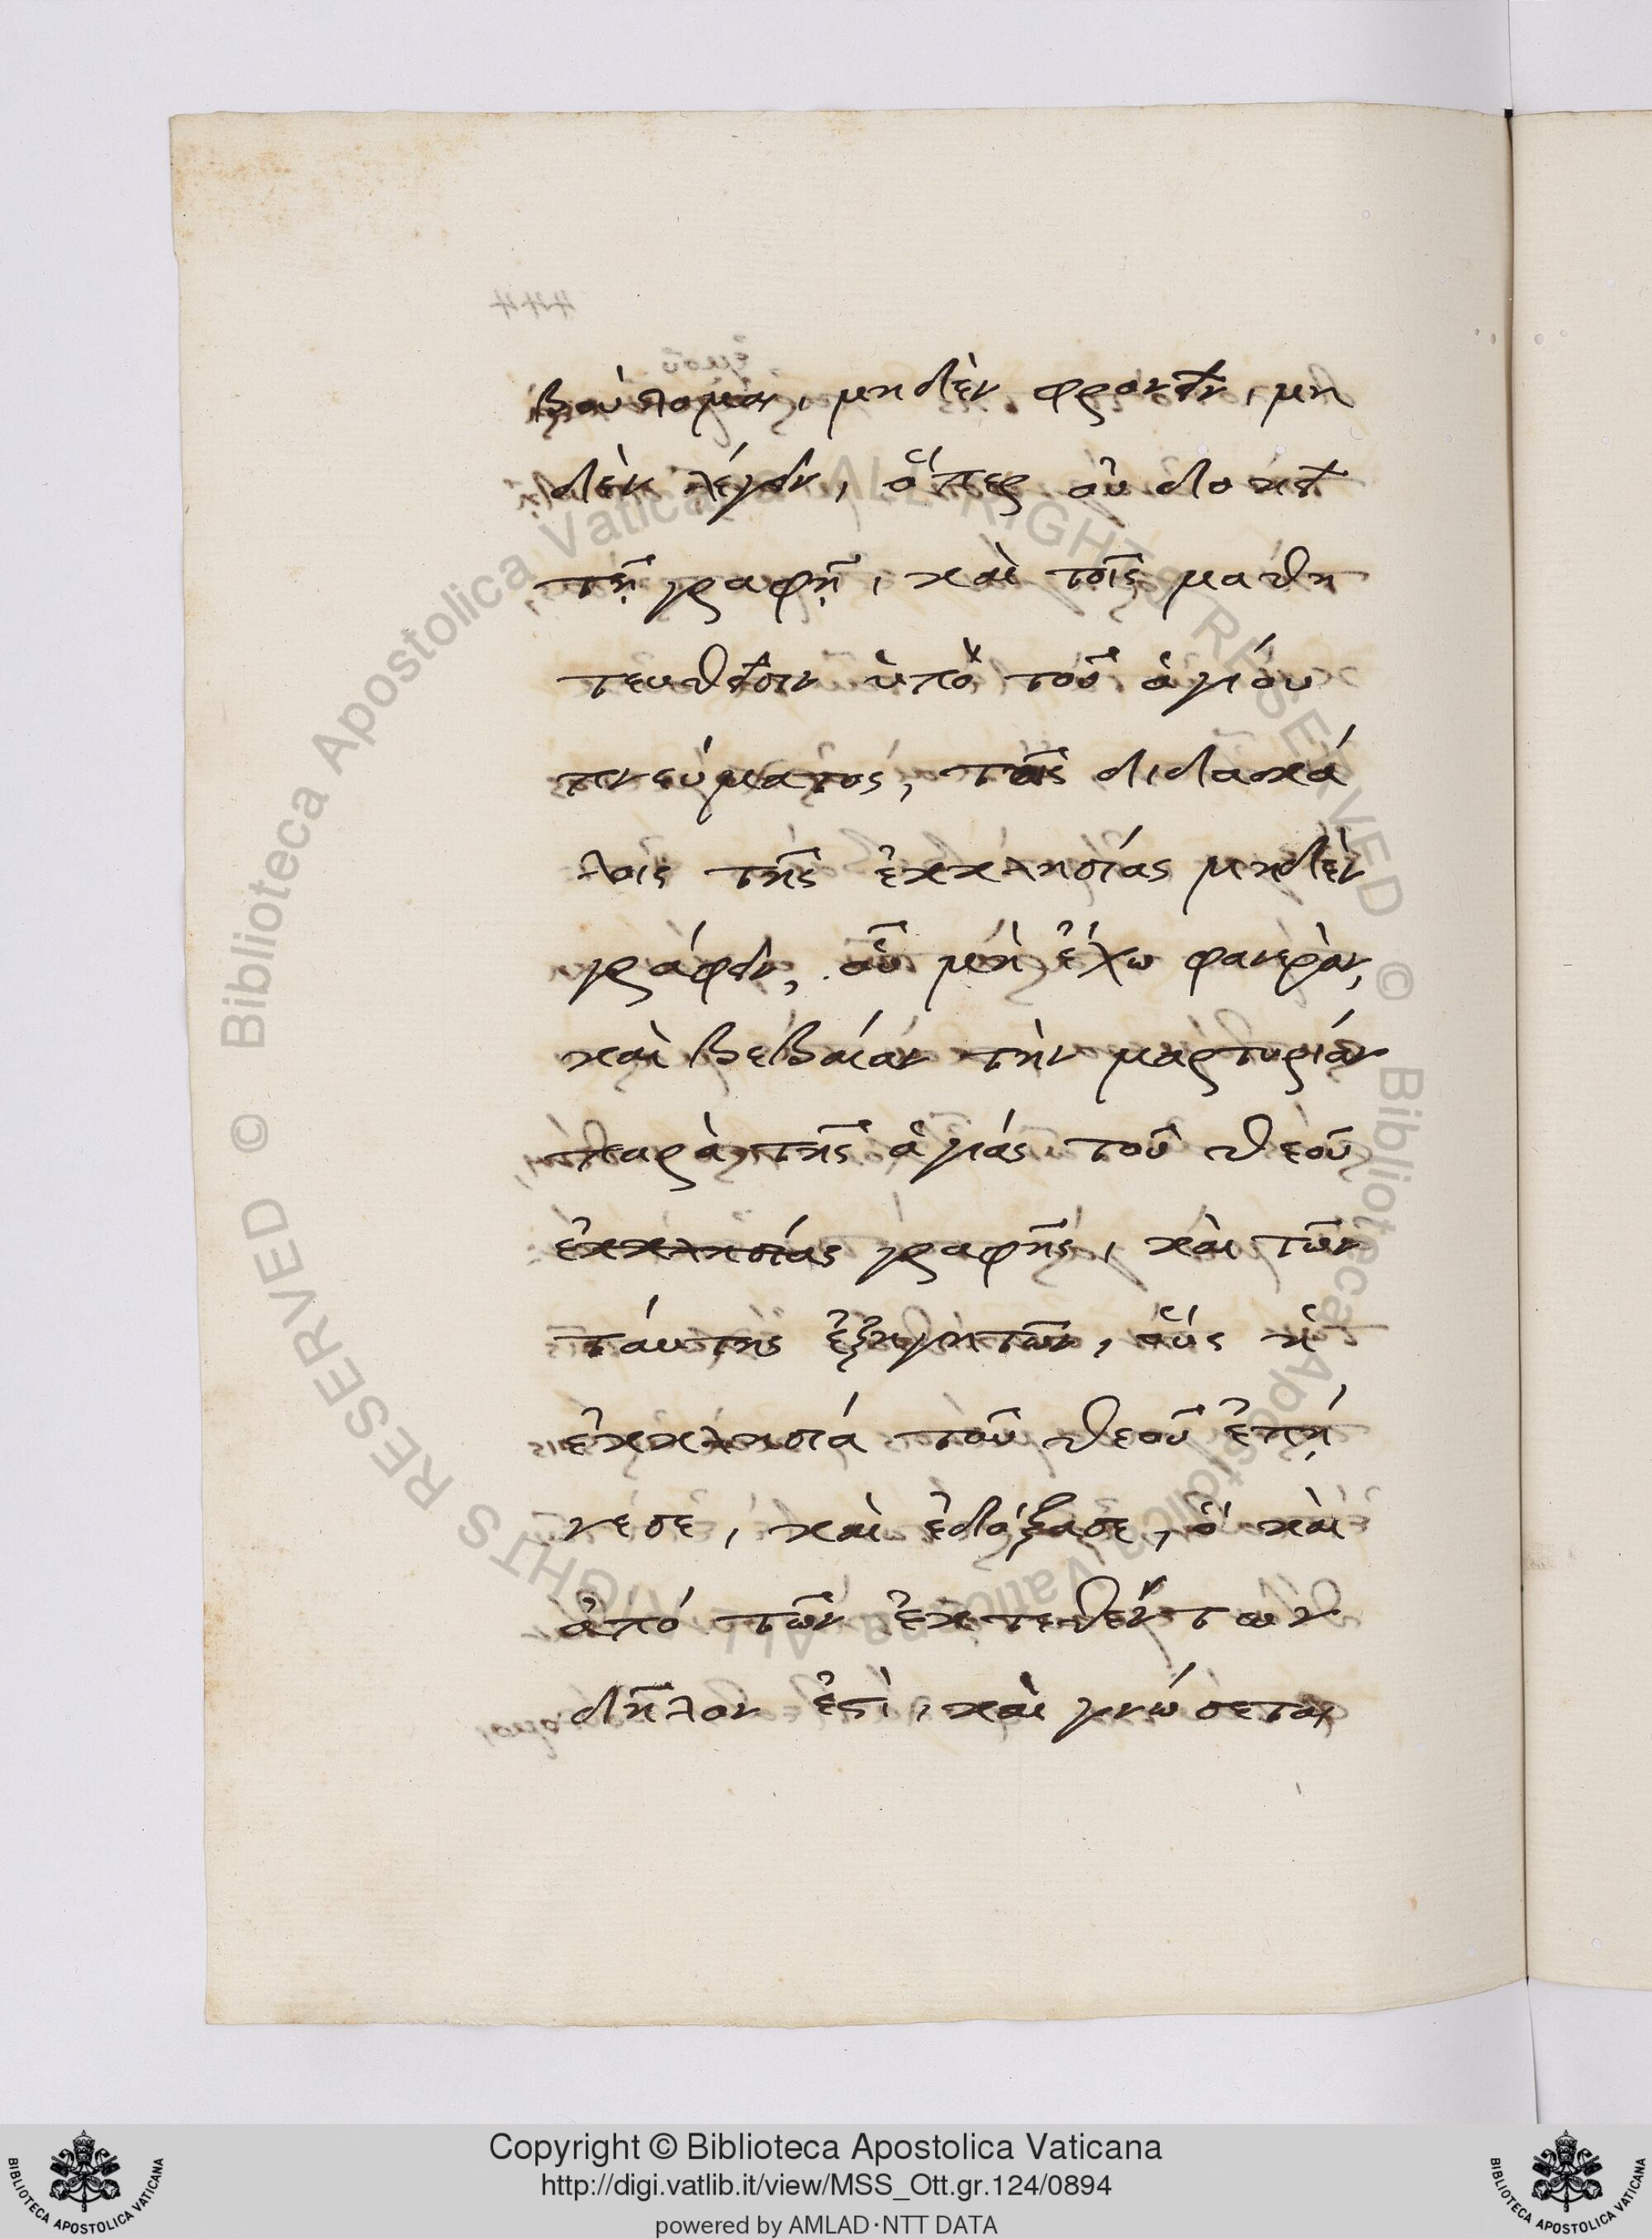 βούλομαι, μηδὲν φρονεῖν, μη
δὲν λέγειν, ὅπερ οὐ δοκεῖ
τῇ γραφῇ, καὶ τοῖς μαθη
τευθεῖσιν ὑπὸ τοῦ ἁγίου
πνεύματος, τοῖς διδασκά
λοις τῆς ἐκκλησίας μηδὲν
γράφειν, οὗ μὴ ἔχω φανερὰν,
καὶ βεβαίαν τὴν μαρτυρίαν
παρὰ τῆς ἁγίας τοῦ θεοῦ
ἐκκλησίας γραφῆς, καὶ τῶν
ταύτης ἐξηγητῶν, οὓς ἡ
ἐκκλησία τοῦ θεοῦ ἐπῄ
νεσε, καὶ ἐδόξασε, ὃ καὶ
ἀπό τῶν ἐκτεθέντων
δῆλον ἐστὶ, καὶ γνώσεται
Copyright © Biblioteca Apostolica Vaticana
http://digi.vatlib.it/view/MSS_Ott.gr.124/0894
powered by AMLAD·NTT DATA
BIBLIOTECA APOSTOLICA VATICANA
BIBLIOTECA APOSTOLICA VATICANA
© Biblioteca Apostolica Vaticana ALL RIGHTS RESERVED
© Biblioteca Apostolica Vaticana ALL RIGHTS RESERVED